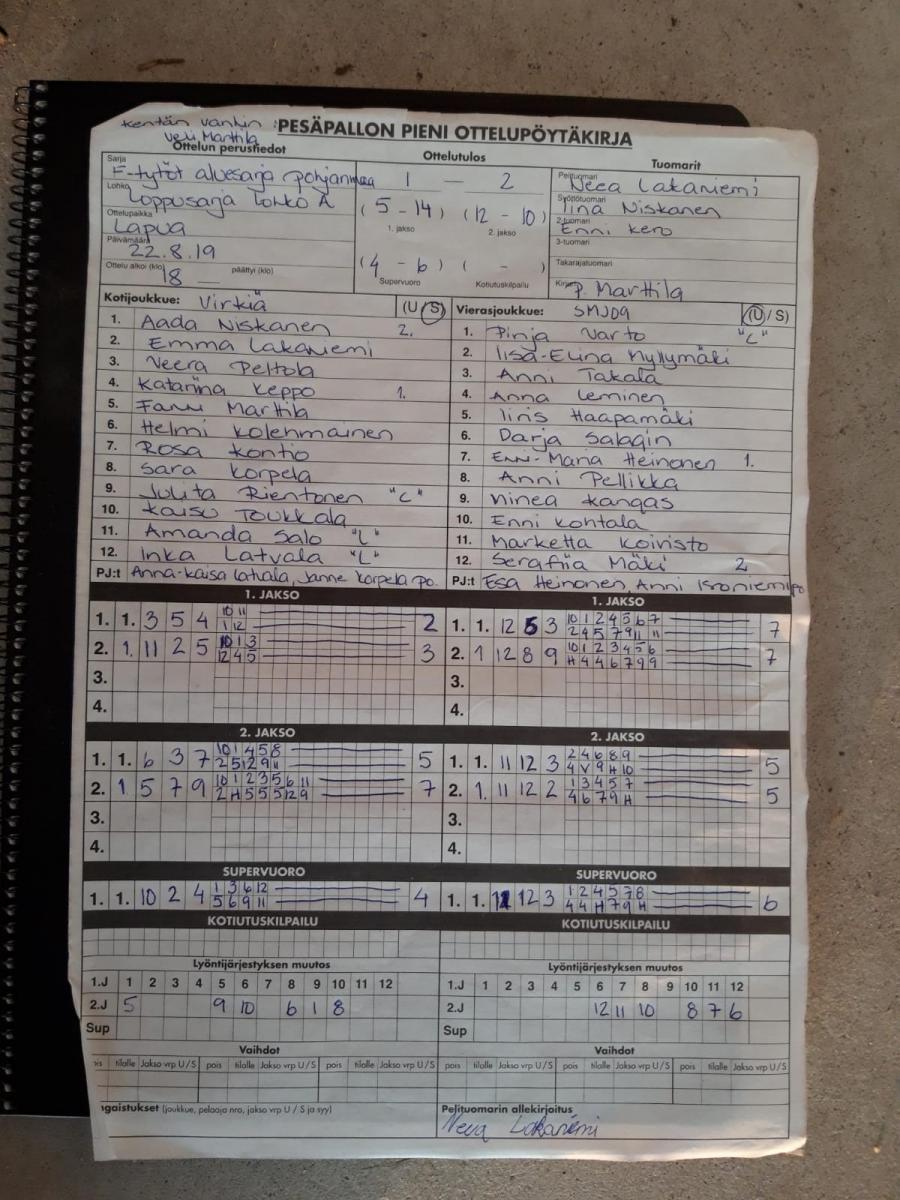 Kentän vanhin :
Veli Marttila
PESÄPALLON PIENI OTTELUPÖYTÄKIRJA
Ottelun perustiedot
Ottelutulos
Tuomarit
Sarja
F-tytöt aluesarja pohjanmaa
Lohko
Loppusarja lohko A
Ottelupaikka
Lapua
Päivämäärä
22.8.19
Ottelu alkoi (klo) 18 päättyi (klo)
1 — 2
(5 - 14) (12 - 10)
1. jakso 2. jakso
(4 - 6) ( - )
Supervuoro Kotiutuskilpailu
Pelituomari
Neea Lakaniemi
Syöttötuomari
Iina Niskanen
2-tuomari
Enni Kero
3-tuomari
Takarajatuomari
Kirjuri P. Marttila
Kotijoukkue: Virkiä (U / S)
1. Aada Niskanen 2.
2. Emma Lakaniemi
3. Veera Peltola
4. Katariina Keppo 1.
5. Fanni Marttila
6. Helmi Kolehmainen
7. Rosa Kontio
8. Sara Korpela
9. Julita Rientonen "L"
10. Kaisu Toukkala
11. Amanda Salo "L"
12. Inka Latvala "L"
PJ:t Anna-Kaisa Latvala, Janne Korpela po.
Vierasjoukkue: SMJ09 (U / S)
1. Pinja Varto "L"
2. Iisa-Elina Nyllymäki
3. Anni Takala
4. Anna Leminen
5. Iiris Haapamäki
6. Darja Salagin
7. Enni-Maria Heinonen 1.
8. Anni Pellikka
9. Ninea Kangas
10. Enni Kohtala
11. Marketta Koivisto
12. Serafiia Mäki 2
PJ:t Esa Heinonen Anni Isoniemi po
1. JAKSO
1. 1. 3 5 4 10 11 2
1 12
2. 1. 11 2 5 10 1 3 3
12 4 5
3.
4.
1. JAKSO
1. 1. 12 5 3 10 1 2 4 5 6 7 7
2 4 5 7 9 11 11
2. 1 12 8 9 10 1 2 3 4 5 6 7
H 4 4 6 7 9 9
3.
4.
2. JAKSO
1. 1. 6 3 7 10 1 4 5 8 5
2 5 12 9 11
2. 1 5 7 9 10 1 2 3 5 6 11 7
2 H 5 5 5 12 9
3.
4.
2. JAKSO
1. 1. 11 12 3 2 4 6 8 9 5
4 V 9 H 10
2. 1. 11 12 2 1 3 4 5 7 5
4 6 7 9 H
3.
4.
SUPERVUORO
1. 1. 10 2 4 1 3 6 12 4
5 6 9 11
SUPERVUORO
1. 1. 11 12 3 1 2 4 5 7 8 6
4 4 H 7 9 H
KOTIUTUSKILPAILU
KOTIUTUSKILPAILU
Lyöntijärjestyksen muutos
1.J 1 2 3 4 5 6 7 8 9 10 11 12
2.J 5 9 10 6 1 8
Sup
Lyöntijärjestyksen muutos
1.J 1 2 3 4 5 6 7 8 9 10 11 12
2.J 12 11 10 8 7 6
Sup
Vaihdot
tilalle Jakso vrp U / S pois tilalle Jakso vrp U / S pois tilalle Jakso vrp U / S
Vaihdot
pois tilalle Jakso vrp U / S pois tilalle Jakso vrp U / S pois tilalle Jakso vrp U / S
ngaistukset (joukkue, pelaaja nro, jakso vrp U / S ja syy)
Pelituomarin allekirjoitus
Neea Lakaniemi